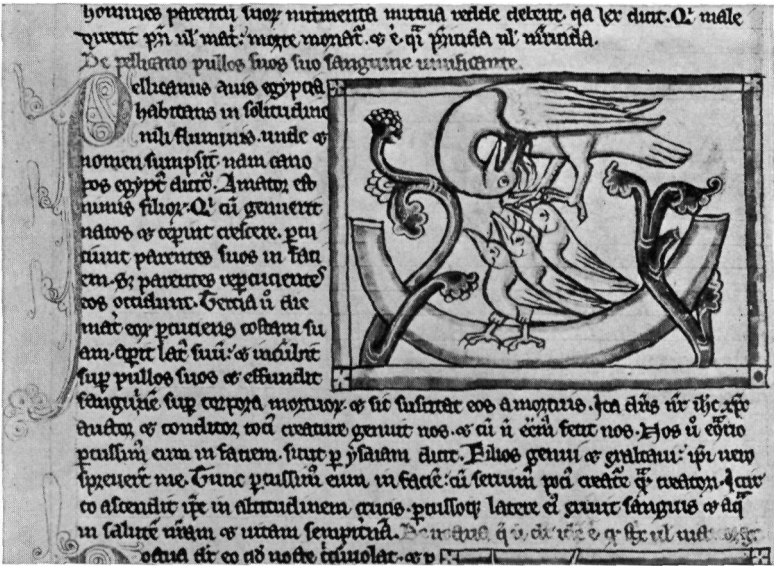 homines parentū suoꝝ nutrimenta mutua redde debent. qa lex dicit. Qi male
dixerit pri ul matri: morte moriat. & e. qi pricida ul mricida.
De pellicano pullos suos suo sanguine uiuificante.
Pellicanus auis egyptia
habitans in solitudine
nili fluminis. unde &
nomen sumpsit. nam cano
pos egypt dicit. Amator est
nimis filioꝝ. Qi cū genuerit
natos & ceperint crescere. pcu
tiunt parentes suos in faci
em. s; parentes repcucientes
eos occidunt. Tercia ū die
mat eoꝝ pcuciens costam su
am. apit lat suū: & incūbit
sup pullos suos & effundit
sanguinē sup corpora mortuoꝝ. & sic suscitat eos a mortuis. Ita dns nr ihc xpc
auctor & conditor toci creature genuit nos. & cū n eēm fecit nos. Nos ū
pcussim eum in faciem. sicut p ysaiam dicit. Filios genui & exaltaui: ipi uero
spreuert me. Tunc pcussim eum in facie: cū seruim poci creatē qa creatori. Icirc
co ascendit ipe in altitudinem crucis. pcussoq latere ei exiuit sanguis & aqa
in salutē nram & uitam sempitnā.
octua dr eo qd nocte